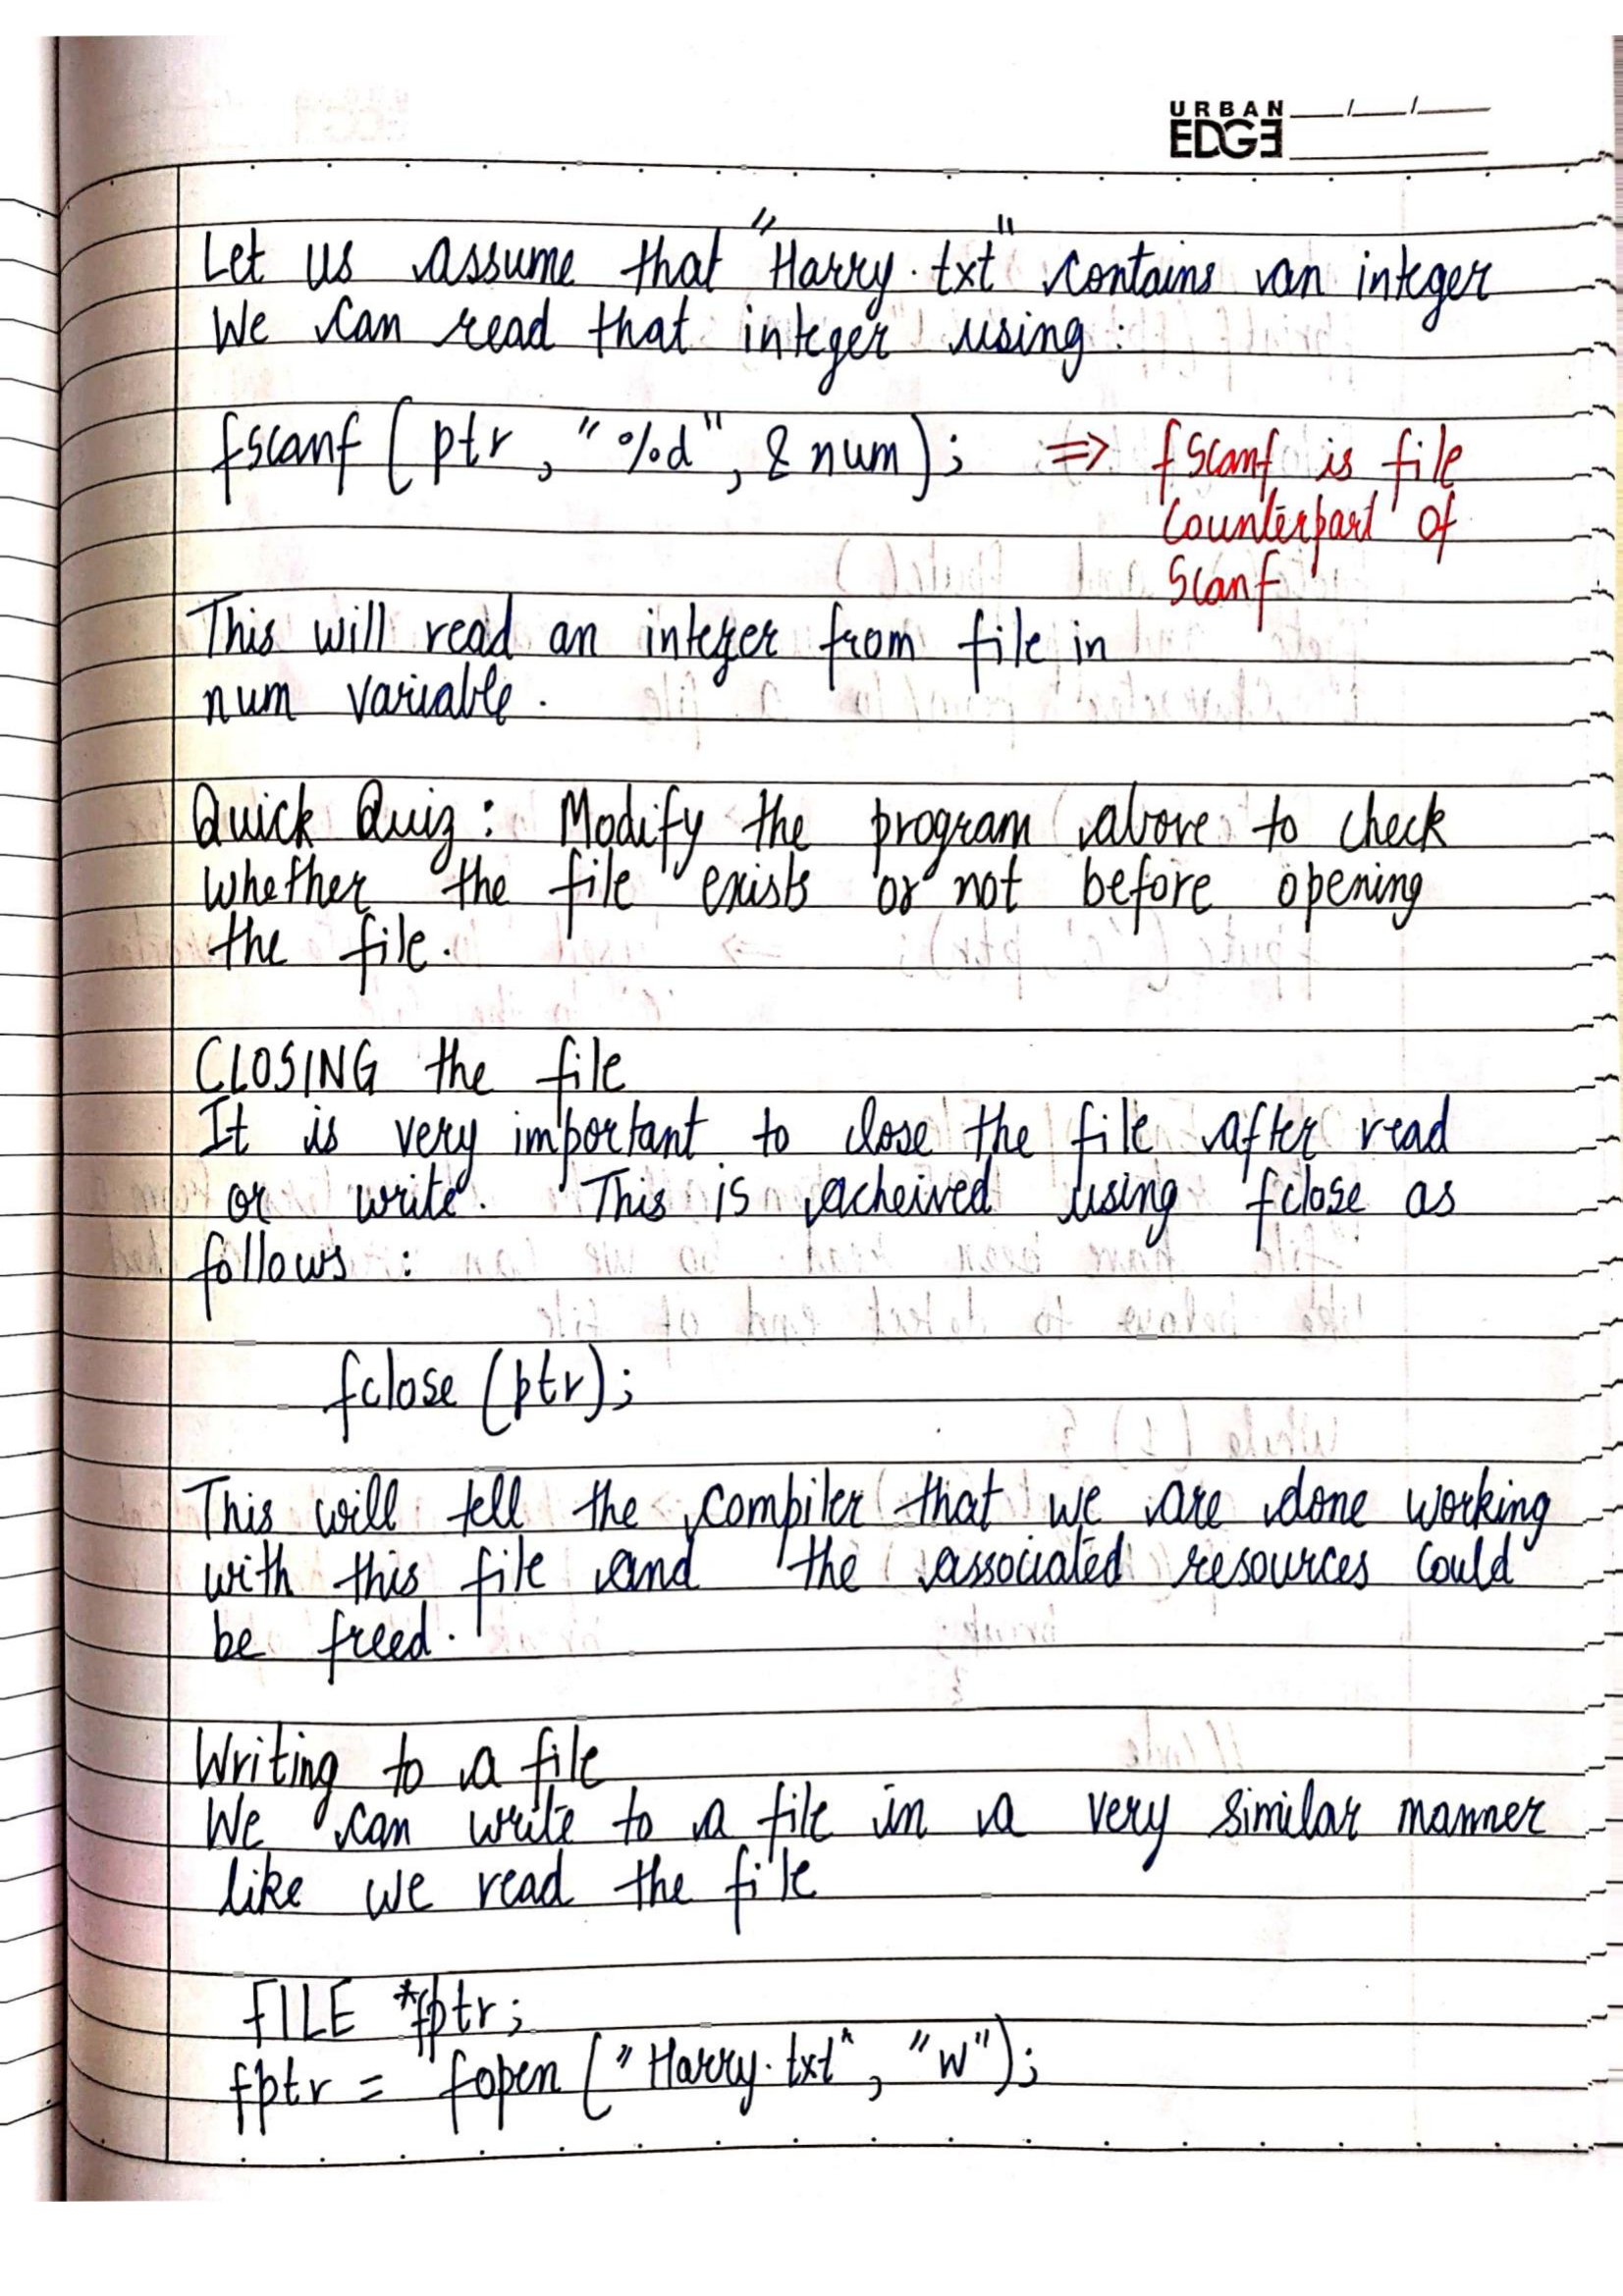 URBAN
EDGE
Let us assume that "Harry.txt" contains an integer
We can read that integer using :
fscanf ( ptr , "%d", & num ); => fscanf is file
counterpart of
scanf
This will read an integer from file in
num variable .
Quick Quiz : Modify the program above to check
whether the file exists or not before opening
the file.
CLOSING the file
It is very important to close the file after read
or write. This is acheived using fclose as
follows :
fclose (ptr);
This will tell the compiler that we are done working
with this file and the associated resources could
be freed.
Writing to a file
We can write to a file in a very similar manner
like we read the file
FILE *fptr;
fptr = fopen ("Harry.txt", "w");